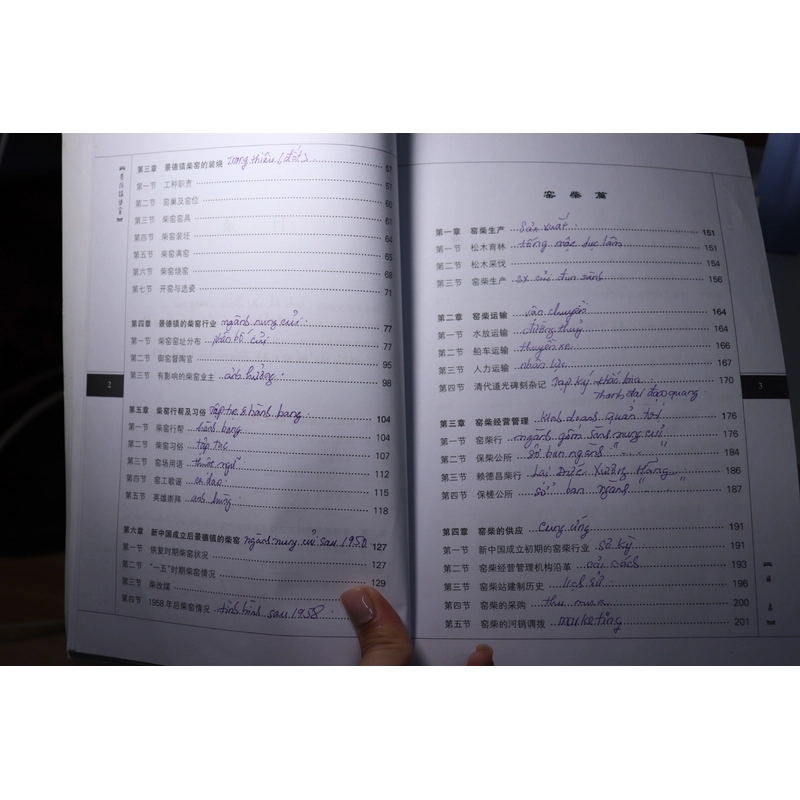 第三章 景德镇柴窑的装烧 trang thiêu (đốt) 57
第一节 工种职责 57
第二节 窑巢及窑位 60
第三节 柴窑窑具 61
第四节 柴窑装坯 64
第五节 柴窑满窑 65
第六节 柴窑烧窑 68
第七节 开窑与选瓷 71
第四章 景德镇的柴窑行业 ngành nung củi 77
第一节 柴窑窑址分布 phân bố củi 77
第二节 御窑督陶官 95
第三节 有影响的柴窑业主 ảnh hưởng 98
第五章 柴窑行帮及习俗 Tập tục & hành bang 104
第一节 柴窑行帮 hành bang 104
第二节 柴窑习俗 tập tục 107
第三节 窑场用语 thuật ngữ 112
第四节 窑工歌谣 ca dao 115
第五节 英雄崇拜 anh hùng 118
第六章 新中国成立后景德镇的柴窑 ngành nung củi sau 1950 127
第一节 恢复时期柴窑状况 127
第二节 “一五”时期柴窑情况 129
第三节 柴改煤
第四节 1958年后柴窑情况 tình hình sau 1958
2
窑柴篇
第一章 窑柴生产 Sản xuất 151
第一节 松木育林 tông mộc dục lâm 151
第二节 松木采伐 154
第三节 窑柴生产 sx củi đun sành 156
第二章 窑柴运输 vận chuyển 164
第一节 水放运输 đường thuỷ 164
第二节 船车运输 thuyền xe 166
第三节 人力运输 nhân lực 167
第四节 清代道光碑刻杂记 Tạp ký khắc bia 170
thanh đại đạo quang
第三章 窑柴经营管理 kinh doanh quản lý 176
第一节 窑柴行 ngành gốm sành nung củi 176
第二节 保柴公所 sở ban ngành " " 184
第三节 赖德昌柴行 Lai Đức Xương Hãng 186
第四节 保槎公所 sở ban ngành " " 187
第四章 窑柴的供应 cung ứng 191
第一节 新中国成立初期的窑柴行业 sơ kỳ 191
第二节 窑柴经营管理机构沿革 cải cách 193
第三节 窑柴站建制历史 lịch sử 196
第四节 窑柴的采购 thu mua 200
第五节 窑柴的河销调拨 marketing 201
3